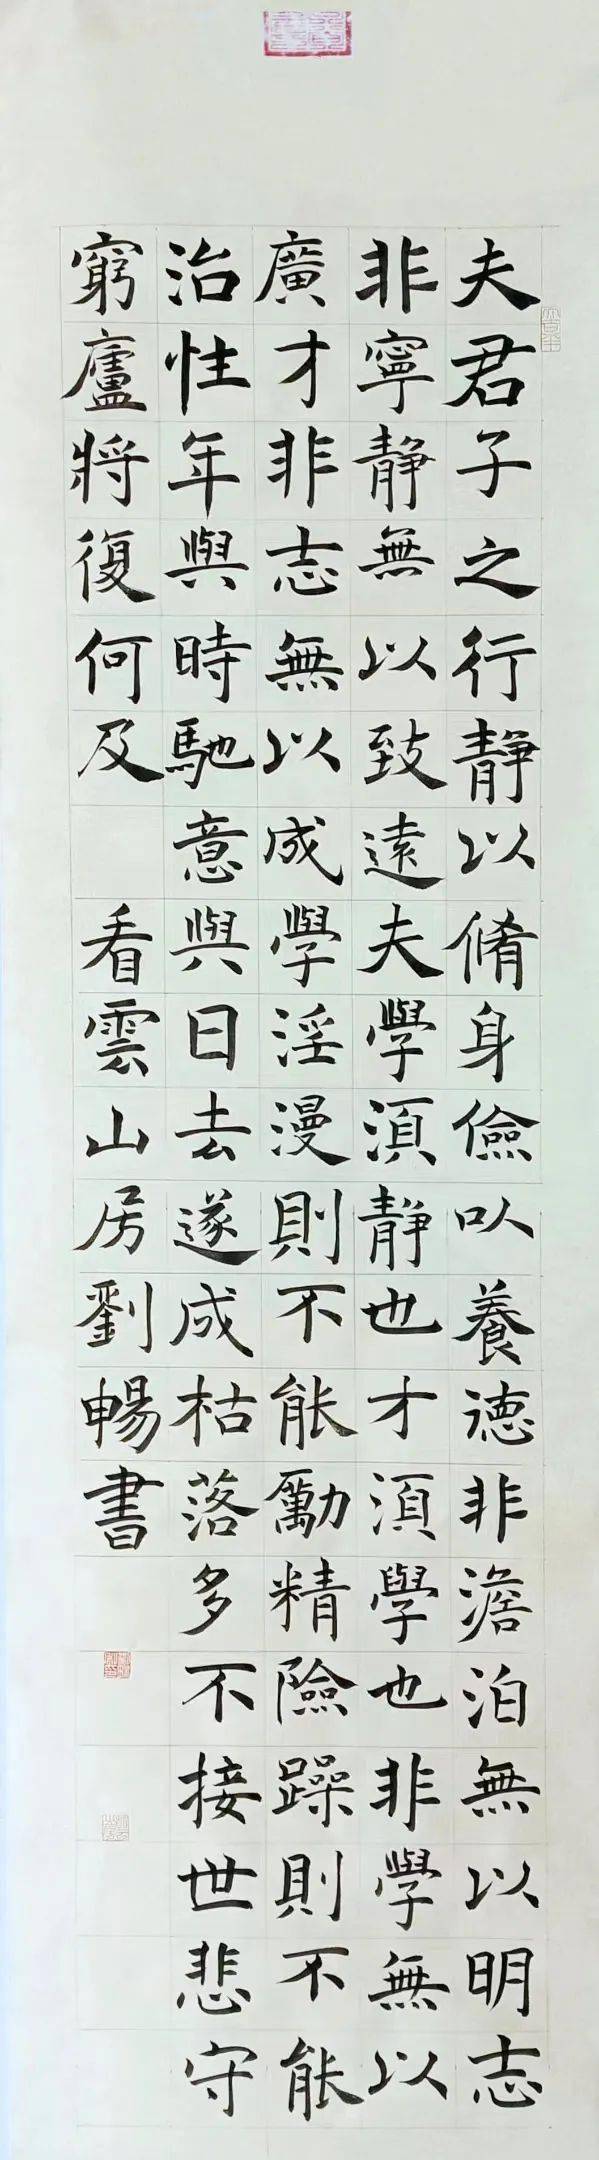 夫君子之行静以脩身儉以養德非澹泊無以明志
非寧静無以致遠夫學須静也才須學也非學無以
廣才非志無以成學淫漫則不能勵精險躁則不能
治性年與時馳意與日去遂成枯落多不接世悲守
窮廬將復何及 看雲山房劉暢書